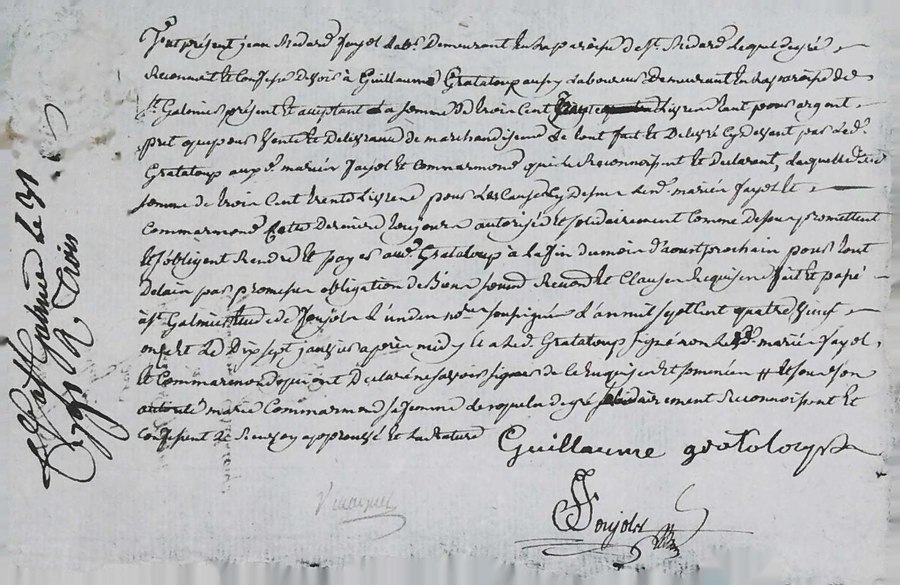 fut présent jean Medard fayol lab.r Demeurant en la paroisse de St. Medard Lequel de gré
Reconnait et Confesse Devoir à Guillaume Grataloup aussy Laboureur Demeurant en la paroisse de
St. Galmier présent et acceptant La somme De trois Cent trente Livres tant pour argent
pret que pour Vente et Délivrance de marchandises de tout fait et Délivré Cy devant par Led.
Grataloup aux d. mariés fayol et Commarmond qui le Reconnoissent et Declarent, Laquelle
somme de trois Cent trente Livres pour Les Causes Cy Dessus Les d. mariés fayol et
Commarmond Cette Derniere toujours autorisée et solidairement Comme dessus promettent
et s'obligent Rendre et payer aud. Grataloup à La fin du mois d'aoust prochain pour tout
Delais par promesse obligation de Biens soumis. Renon. et Clauses Requises fait et passé
à St. Galmier Etude de Jonjolz L'un des no.res soussignés L'an mil sept Cent quatre Vingt
onze et Le Dix sept janvier après midy Et a Led. Grataloup signé non Lesd. mariés fayol,
et Commarmond qui ont Déclaré ne savoir signer de ce Enquis et sommés # et sous son
autorité marie Commarmond sa femme Lesquels de gré solidairement Reconnoissent et
Confessent Le Renvoy approuvé et La Rature
Guillaume grotoloup
Jonjolz